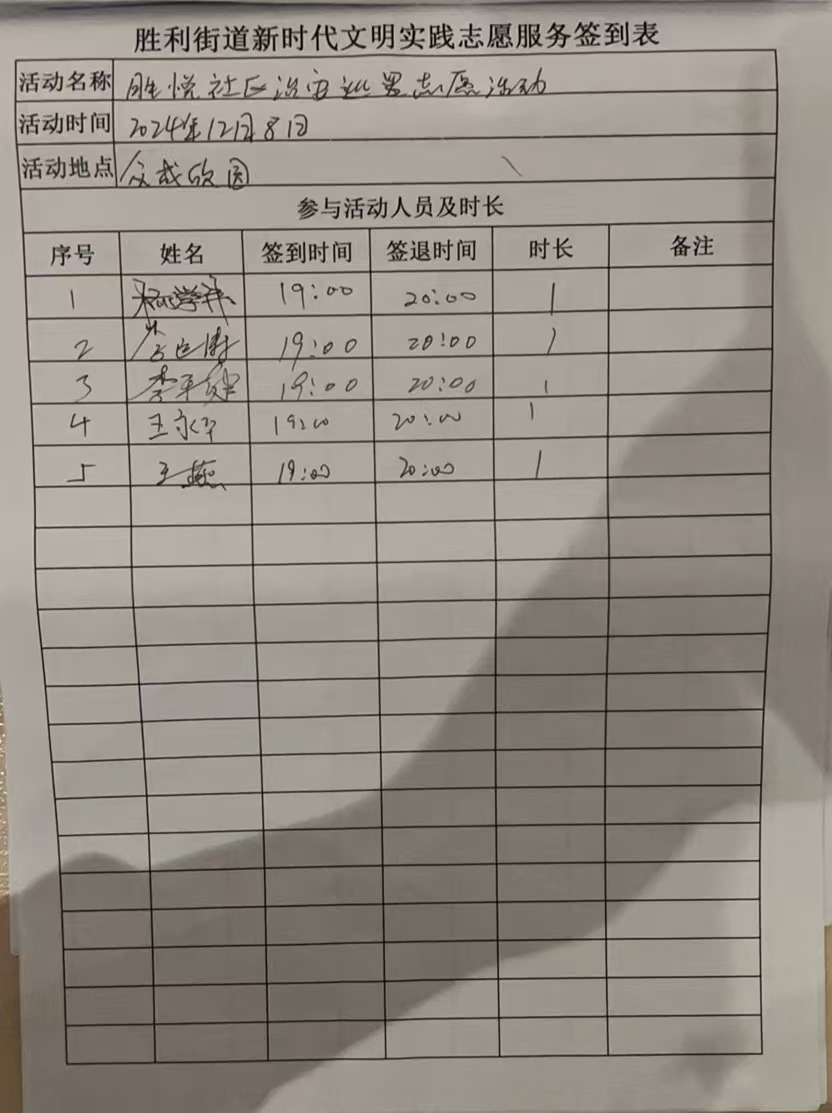 胜利街道新时代文明实践志愿服务签到表
活动名称 胜悦社区治安巡逻志愿活动
活动时间 2024年12月8日
活动地点
参与活动人员及时长
序号 姓名 签到时间 签退时间 时长 备注
1 19:00 20:00 1
2 19:00 20:00 1
3 李平 19:00 20:00 1
4 王永平 19:00 20:00 1
5 王燕 19:00 20:00 1